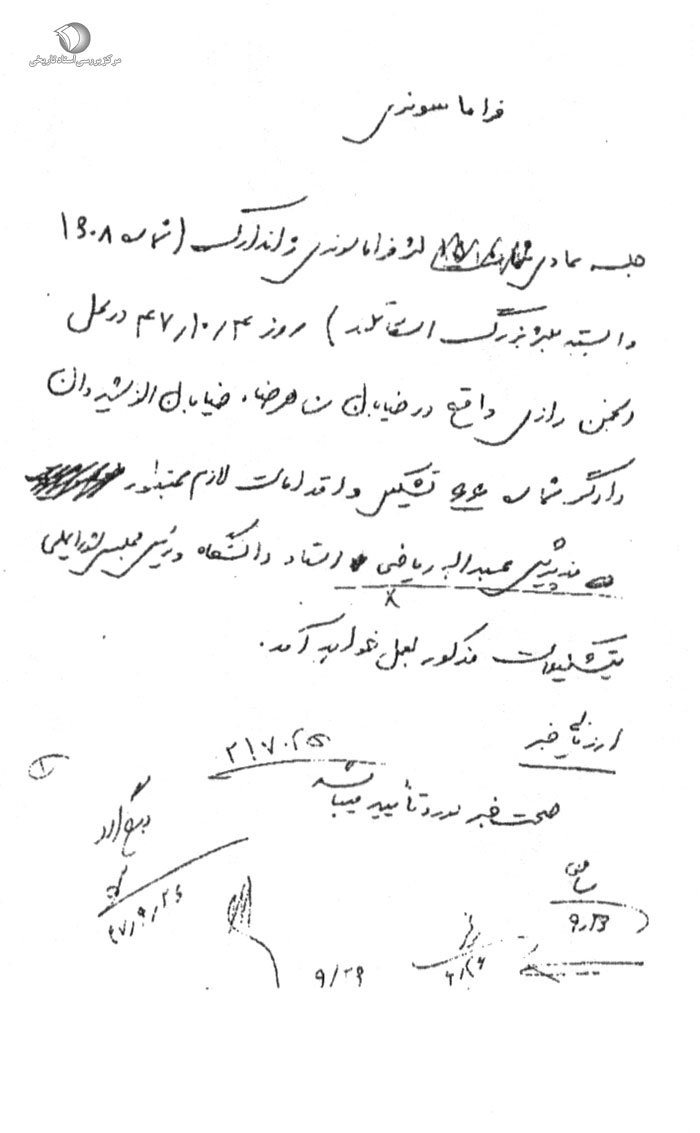 مرکز بررسی اسناد تاریخی
فراماسونری
جلسه عادی لژ فراماسونری ژاندارک (شماره ۱۳۰۸
وابسته بلژ بزرگ اسکاتلند) روز ۴۷/۱۰/۴ در محل
انجمن رازی واقع در خیابان شاهرضا، خیابان انوشیروان
دادگر شماره ۶۶ تشکیل و اقدامات لازم بمنظور
پذیرش عبداله ریاضی استاد دانشگاه و رئیس مجلس شورایملی
بتشکیلات مذکور بعمل خواهد آمد.
ارزیابی خبر
صحت خبر مورد تأیید میباشد
۹/۲۳
۹/۲۴